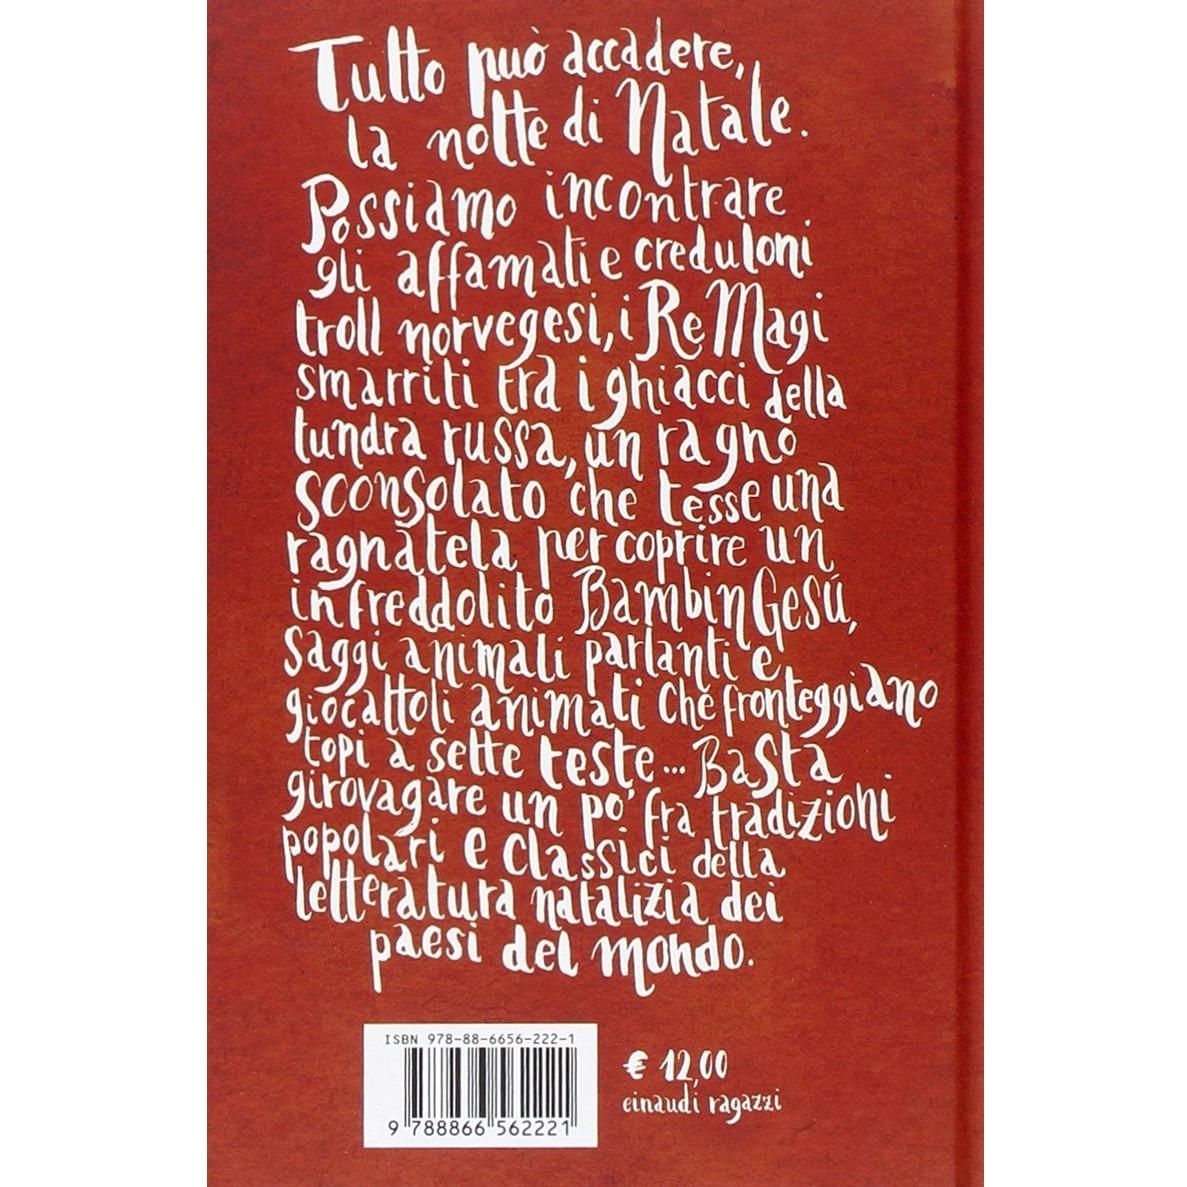 Tutto può accadere,
la notte di Natale.
Possiamo incontrare
gli affamati e creduloni
troll norvegesi, i Re Magi
smarriti tra i ghiacci della
tundra russa, un ragno
sconsolato che tesse una
ragnatela per coprire un
infreddolito Bambin Gesú,
saggi animali parlanti e
giocattoli animati che fronteggiano
topi a sette teste... Basta
girovagare un po' fra tradizioni
popolari e classici della
letteratura natalizia dei
paesi del mondo.
ISBN 978-88-6656-222-1
9 788866 562221
€ 12,00
einaudi ragazzi